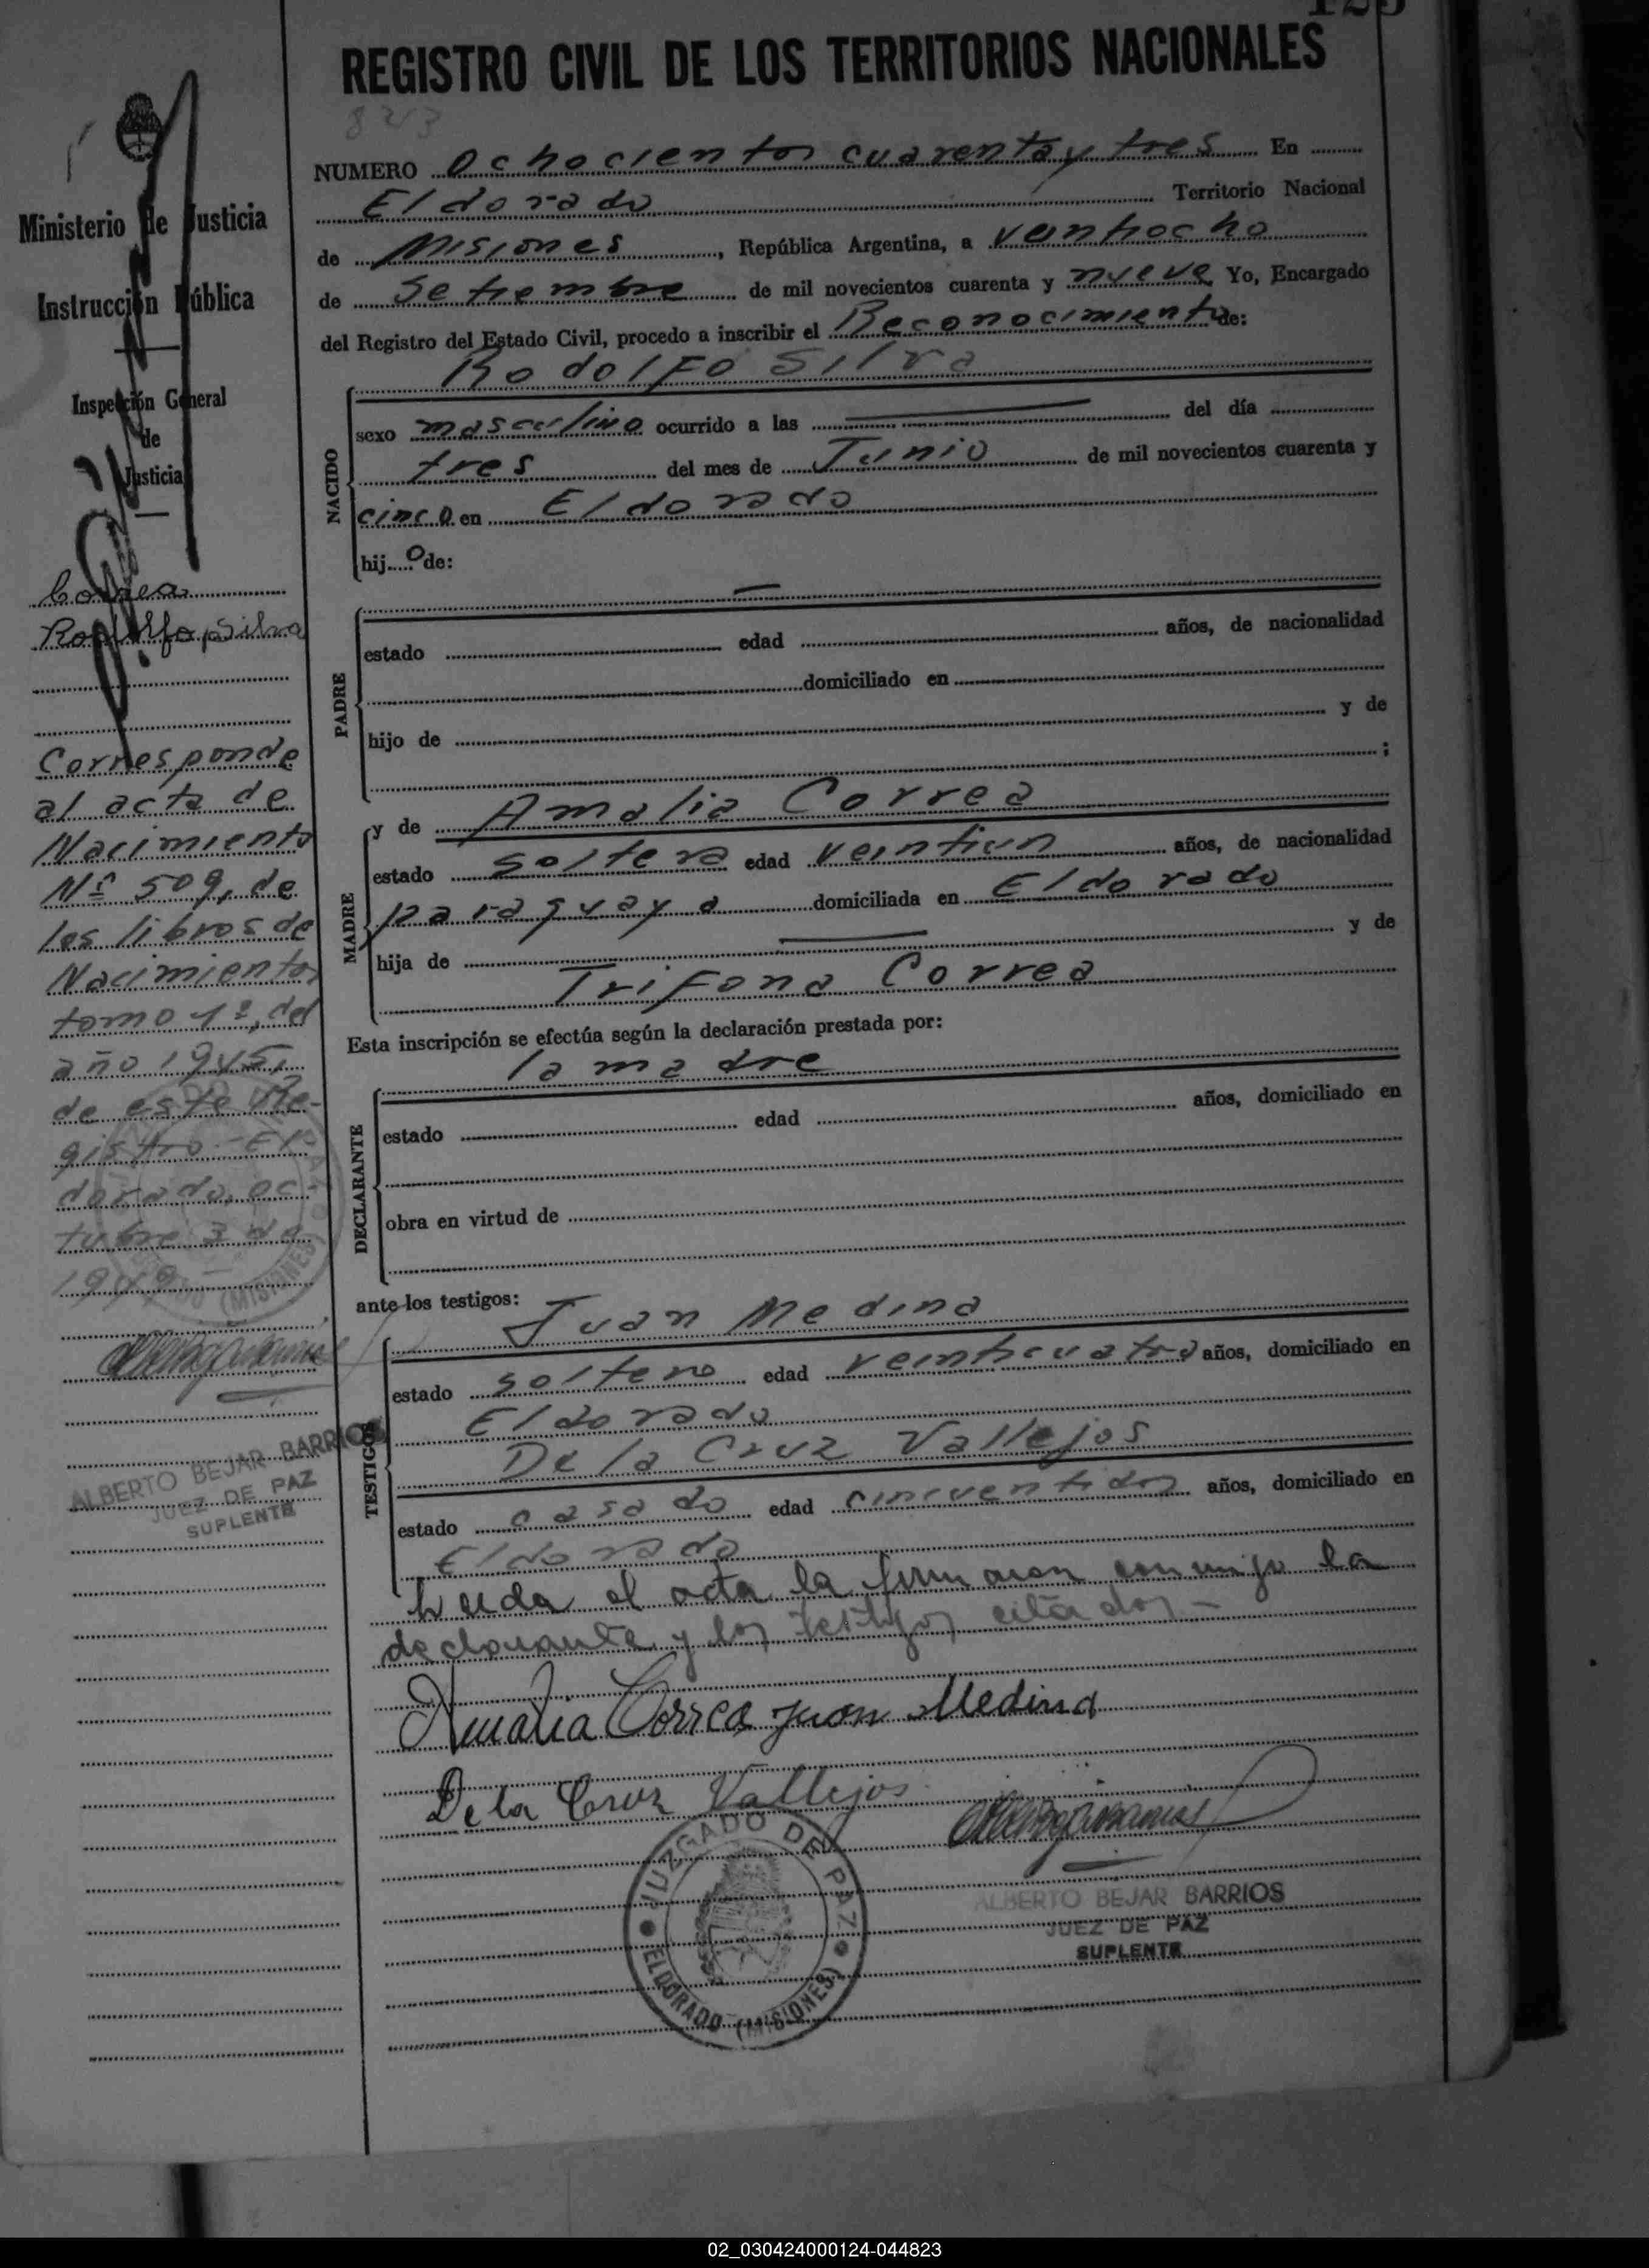 REGISTRO CIVIL DE LOS TERRITORIOS NACIONALES
843
NUMERO Ochocientos cuarenta y tres En
Eldorado Territorio Nacional
de Misiones, República Argentina, a veintiocho
de Setiembre de mil novecientos cuarenta y nueve Yo, Encargado
del Registro del Estado Civil, procedo a inscribir el Reconocimiento de:
Rodolfo Silva
NACIDO
sexo masculino ocurrido a las del día
tres del mes de Junio de mil novecientos cuarenta y
cinco en Eldorado
hijo de:
PADRE
estado edad años, de nacionalidad
domiciliado en
hijo de y de
;
MADRE
y de Amalia Correa
estado soltera edad veintiun años, de nacionalidad
paraguaya domiciliada en Eldorado
hija de y de
Trifona Correa
Esta inscripción se efectúa según la declaración prestada por:
la madre
DECLARANTE
estado edad años, domiciliado en
obra en virtud de
ante los testigos:
TESTIGOS
Juan Medina
estado soltero edad veinticuatro años, domiciliado en
Eldorado
De la Cruz Vallejos
estado casado edad cincuentidos años, domiciliado en
Eldorado
Leida el acta la firmaron conmigo la
declarante y los testigos citados.-
Amalia Correa Juan Medina
De la Cruz Vallejos
JUZGADO DE PAZ
ELDORADO (MISIONES)
ALBERTO BEJAR BARRIOS
JUEZ DE PAZ
SUPLENTE
Ministerio de Justicia
Instrucción Pública
Inspección General
de
Justicia
Correa
Rodolfo Silva
Corresponde
al acta de
Nacimiento
Nº 509, de
los libros de
Nacimiento,
tomo 1º, del
año 1945,
de este Re-
gistro.- El-
dorado, oc-
tubre 3 de
1949.-
(MISIONES)
ALBERTO BEJAR BARRIOS
JUEZ DE PAZ
SUPLENTE
02_030424000124-044823